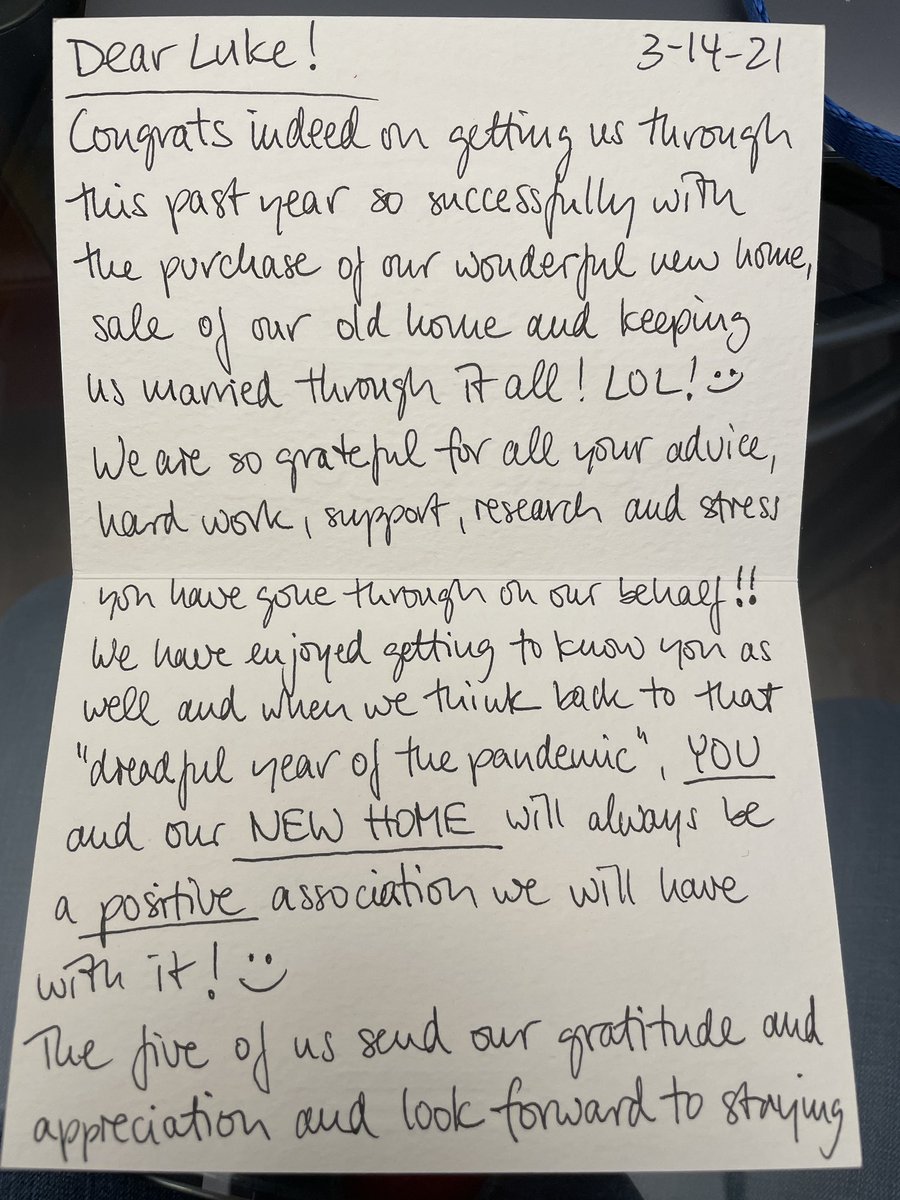 Dear Luke!
3-14-21
Congrats indeed on getting us through
this past year so successfully with
the purchase of our wonderful new home,
sale of our old home and keeping
us married through it all! LOL! :)
We are so grateful for all your advice,
hard work, support, research and stress
you have gone through on our behalf!!
We have enjoyed getting to know you as
well and when we think back to that
"dreadful year of the pandemic", YOU
and our NEW HOME will always be
a positive association we will have
with it! :)
The five of us send our gratitude and
appreciation and look forward to staying